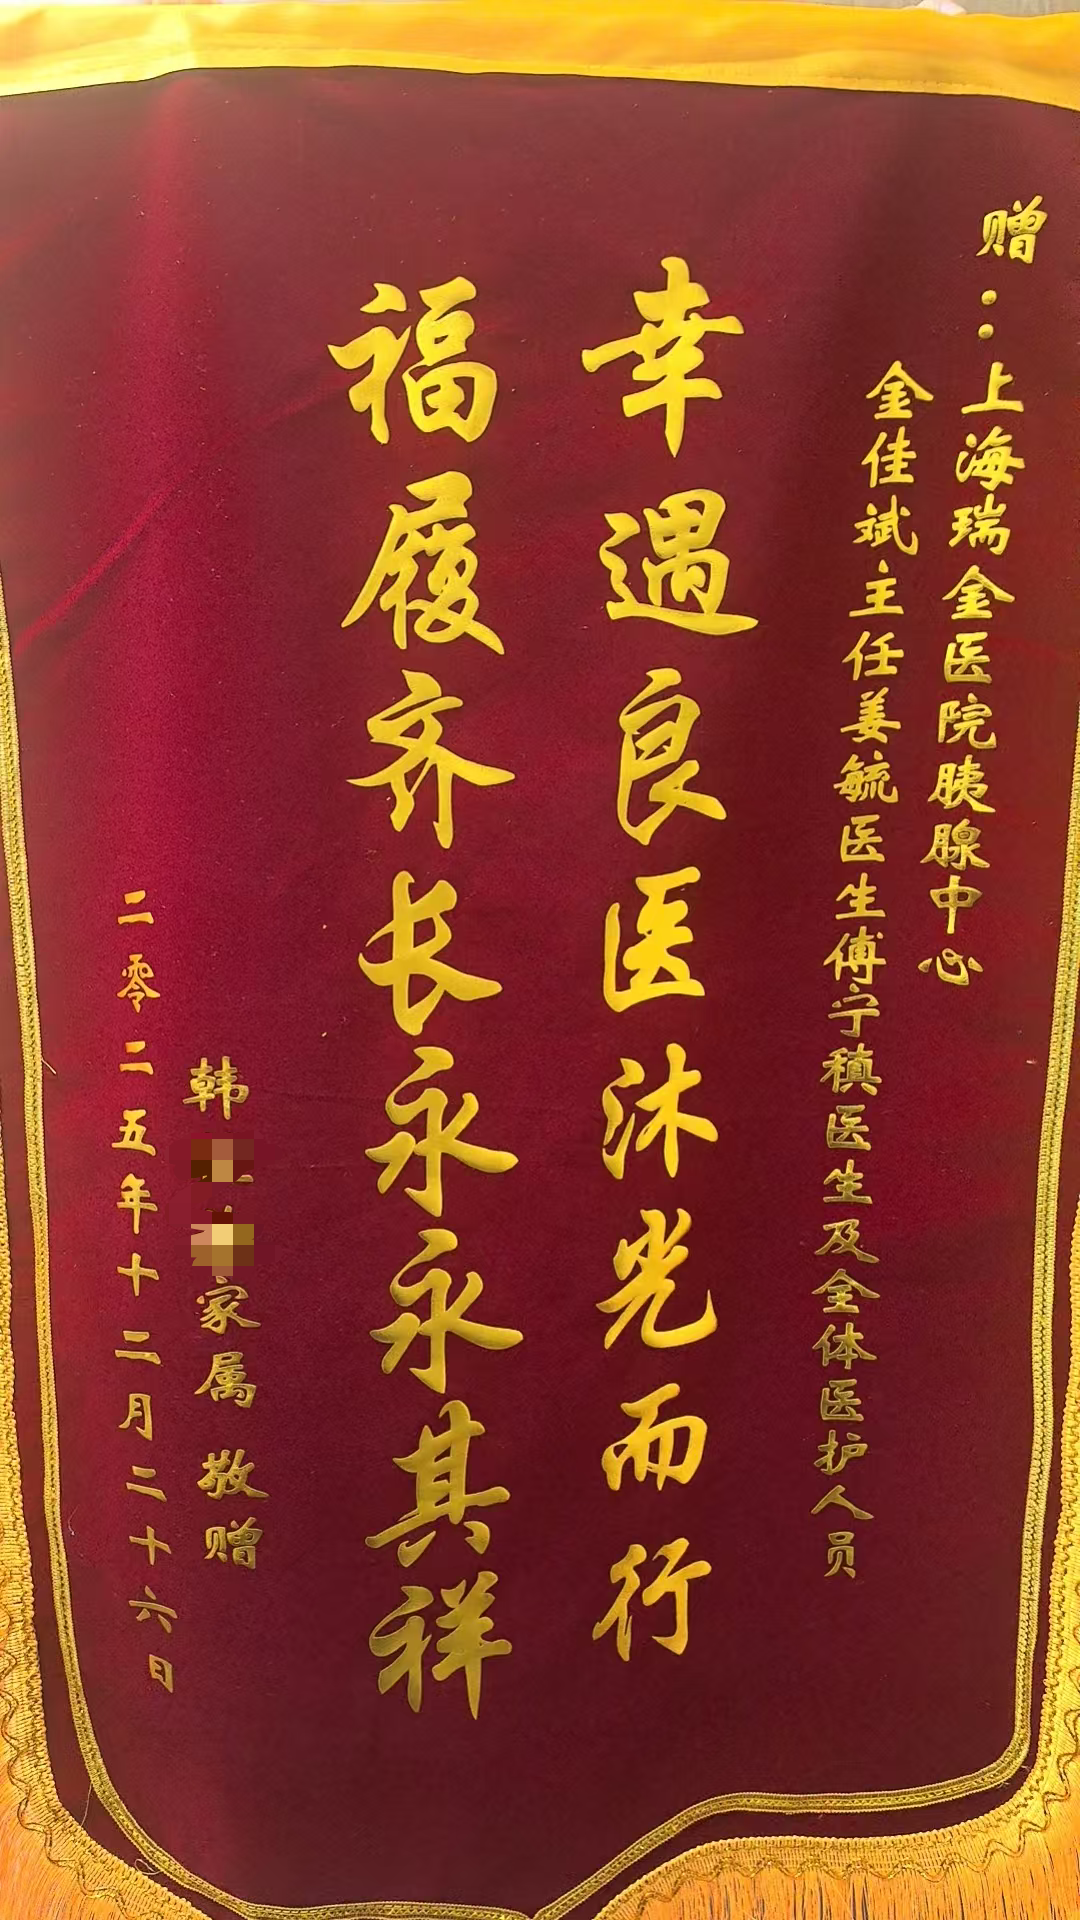 赠：上海瑞金医院胰腺中心
金佳斌主任姜毓医生傅宁稹医生及全体医护人员
幸遇良医沐光而行
福履齐长永永其祥
韩家属 敬赠
二零二五年十二月二十六日